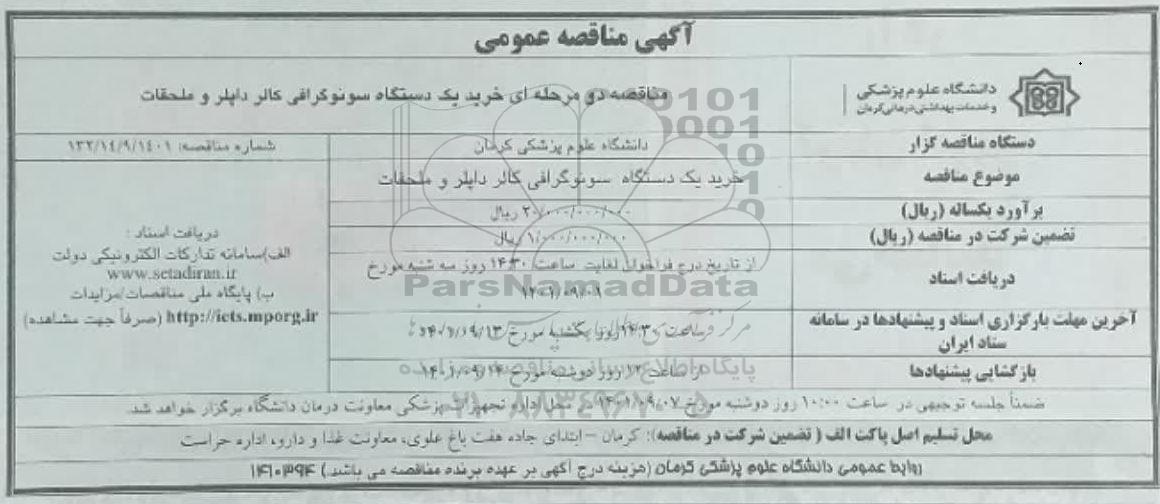 آگهی مناقصه عمومی
دانشگاه علوم پزشکی
و خدمات بهداشتی درمانی کرمان
مناقصه دو مرحله ای خرید یک دستگاه سونوگرافی کالر داپلر و ملحقات
دستگاه مناقصه گزار
دانشگاه علوم پزشکی کرمان
شماره مناقصه: ۱۳۲/۱٤/۹/۱٤۰۱
موضوع مناقصه
خرید یک دستگاه سونوگرافی کالر داپلر و ملحقات
برآورد یکساله (ریال)
۲۰/۰۰۰/۰۰۰/۰۰۰ ریال
تضمین شرکت در مناقصه (ریال)
۱/۰۰۰/۰۰۰/۰۰۰ ریال
دریافت اسناد
از تاریخ درج فراخوان لغایت ساعت ۱۴:۳۰ روز سه شنبه مورخ
۱۴۰۱/۰۹/۰۱
دریافت اسناد :
الف)سامانه تدارکات الکترونیکی دولت
www.setadiran.ir
ب) پایگاه ملی مناقصات/مزایدات
http://iets.mporg.ir (صرفاً جهت مشاهده)
آخرین مهلت بارگزاری اسناد و پیشنهادها در سامانه
ستاد ایران
ساعت ۱۴:۳۰ روز یکشنبه مورخ ۱۴۰۱/۰۹/۱۳
بازگشایی پیشنهادها
از ساعت ۱۲ روز دوشنبه مورخ ۱۴۰۱/۰۹/۱۴
ضمناً جلسه توجیهی در ساعت ۱۰:۰۰ روز دوشنبه مورخ ۱۴۰۱/۰۹/۰۷ در محل اداره تجهیزات پزشکی معاونت درمان دانشگاه برگزار خواهد شد.
محل تسلیم اصل پاکت الف ( تضمین شرکت در مناقصه): کرمان – ابتدای جاده هفت باغ علوی، معاونت غذا و دارو، اداره حراست
روابط عمومی دانشگاه علوم پزشکی کرمان (هزینه درج آگهی بر عهده برنده مناقصه می باشد.) ۱۴۱۰۳۹۴
ParsNamadData